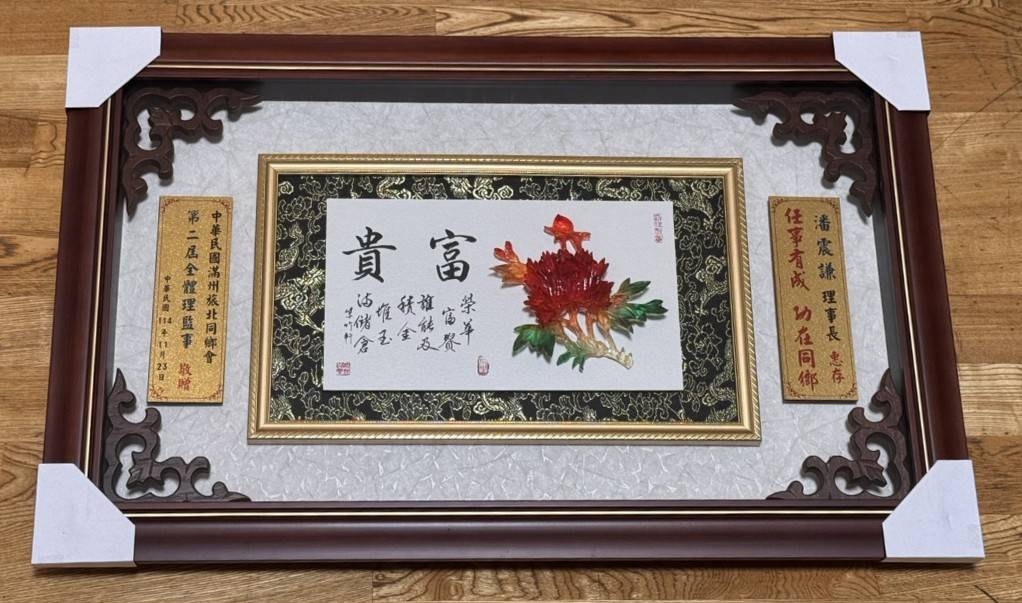 潘震謙 理事長 惠存
任事有成 功在同鄉
富貴
榮華
富貴
誰能及
積金
堆玉
滿儲倉
中華民國滿州旅北同鄉會
第二屆全體理監事 敬贈
中華民國114年11月23日